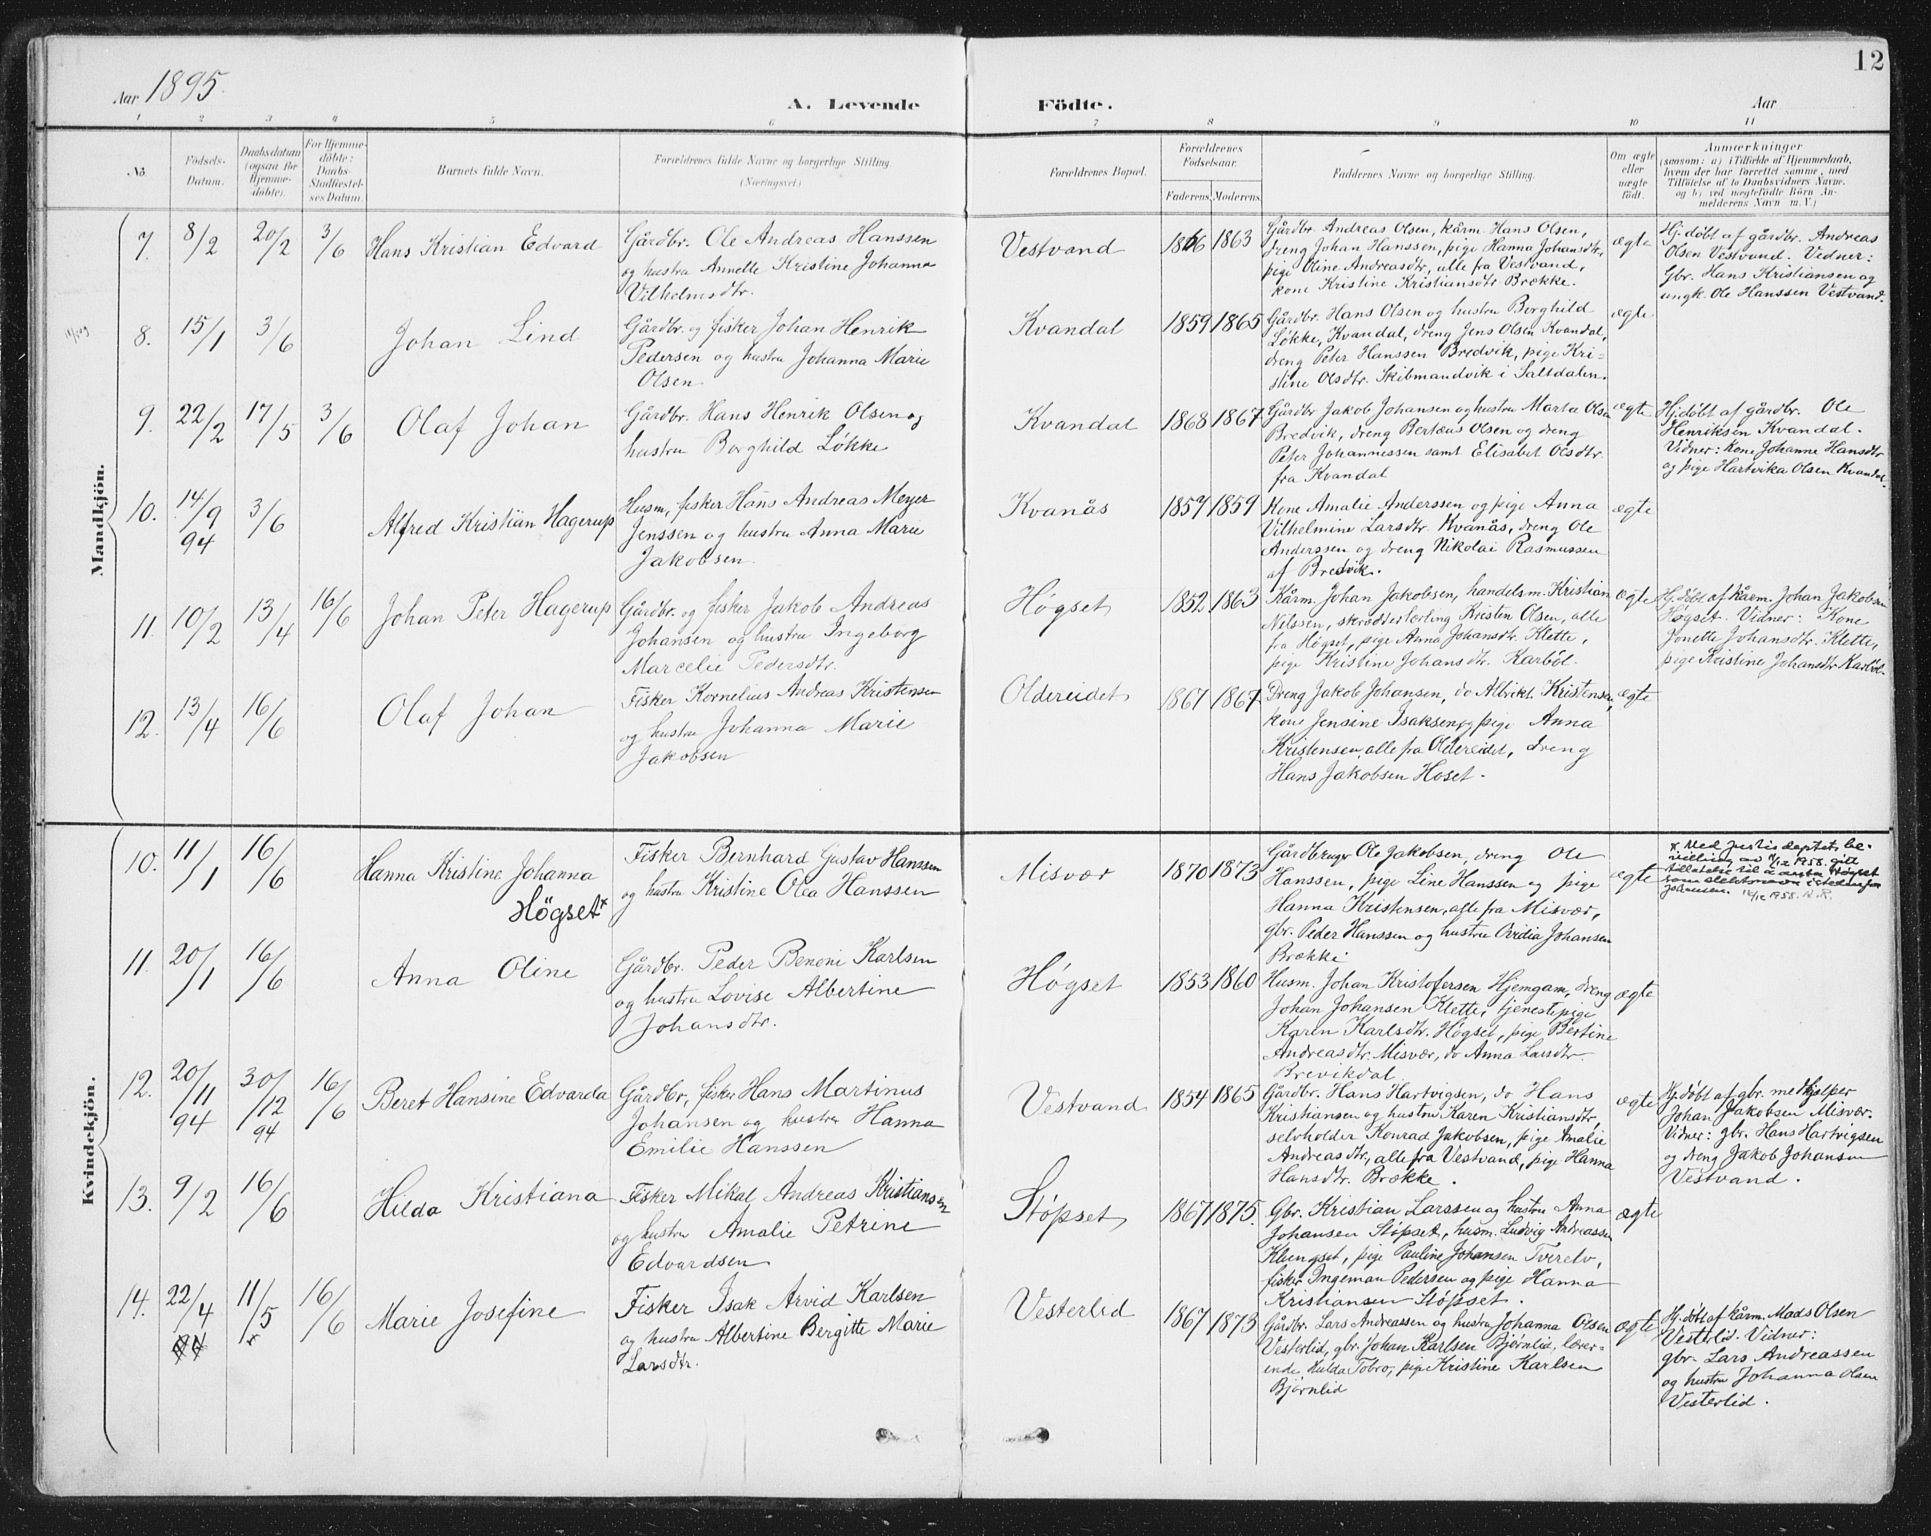 12
Aar 1895.
A. Levende Födte.
Aar
1 2 3 4 5 6 7 8 9 10 11
No.
Födsels-Datum.
Daabsdatum (ogsaa for Hjemmedöbte).
For Hjemmedöbte: Daabs-Stadfæstelses Datum.
Barnets fulde Navn.
Forældrenes fulde Navne og borgerlige Stilling.
(Næringsvei)
Forældrenes Bopæl.
Forældrenes Födselsaar.
Faderens. Moderens.
Faddernes Navne og borgerlige Stilling.
Om ægte eller uægte födt.
Anmærkninger
(saasom: a) i Tilfælde af Hjemmedaab, hvem der har forrettet samme, med Tilföielse af to Daabsvidners Navne, og b) ved uægtefödte Börn Anmelderens Navn m. V.)
Mandkjön.
7. 8/2 20/2 3/6 Hans Kristian Edvard
Gårdbr. Ole Andreas Hanssen
og hustru Annette Kristine Johanna
Vilhelmsdtr.
Vestvand 1866 1863
Gårdbr. Andreas Olsen, kårm. Hans Olsen,
dreng Johan Hanssen, pige Hanna Johansdtr,
pige Oline Andreasdtr, alle fra Vestvand,
kone Kristine Kristiansdtr Brække.
ægte
Hj.døbt af gårdbr. Andreas
Olsen Vestvand. Vidner:
Gbr. Hans Kristiansen og
ungk. Ole Hanssen Vestvand.
8. 15/1 3/6 Johan Lind
Gårdbr. og fisker Johan Henrik
Pedersen og hustru Johanna Marie
Olsen
Kvandal 1859 1865
Gårdbr. Hans Olsen og hustru Borghild
Løkke, Kvandal, dreng Jens Olsen Kvandal,
dreng Peter Hanssen Bredvik, pige Kri-
stine Olsdtr. Skibmandvik i Saltdalen.
ægte
9. 22/2 17/5 3/6 Olaf Johan
Gårdbr. Hans Henrik Olsen og
hustru Borghild Løkke
Kvandal 1868 1867
Gårdbr Jakob Johansen og hustru Marta Olsen
Bredvik, dreng Berteus Olsen og dreng
Peter Johannessen samt Elisabet Olsdtr
fra Kvandal
ægte
Hj.døbt af gårdbr. Ole
Henriksen Kvandal.
Vidner: kone Johanne Hansdtr
og pige Hartvika Olsen Kvandal.
10. 14/9 94 3/6 Alfred Kristian Hagerup
Husm, fisker Hans Andreas Meyer
Jenssen og hustru Anna Marie
Jakobsen
Kvanås 1857 1859
Kone Amalie Anderssen og pige Anna
Vilhelmine Larsdtr. Kvanås, dreng Ole
Anderssen og dreng Nikolai Rasmussen
af Bredvik.
ægte
11. 10/2 13/4 16/6 Johan Peter Hagerup
Gårdbr. og fisker Jakob Andreas
Johansen og hustru Ingeborg
Marcelie Pedersdtr.
Høgset 1852 1863
Kårm. Johan Jakobsen, handelsm. Kristian
Nilssen, skrædderlerling Kristen Olsen, alle
fra Høgset, pige Anna Johansdtr. Klette,
pige Kristine Johansdtr. Karbøl.
ægte
Hj.døbt af kårm. Johan Jakobsen
Høgset. Vidner: Kone
Jonette Johansdtr. Klette,
pige Kristine Johansdtr Karbøl.
12. 13/4 16/6 Olaf Johan
Fisker Kornelius Andreas Kristensen
og hustru Johanna Marie
Jakobsen
Oldereidet 1867 1867
Dreng Jakob Johansen, do Albrikt Kristensen,
kone Jensine Isaksen og pige Anna
Kristensen, alle fra Oldereidet, dreng
Hans Jakobsen Hoset.
ægte
Kvindekjön.
10. 11/1 16/6 Hanna Kristine Johanna
Högset*
Fisker Bernhard Gustav Hanssen
og hustru Kristine Olea Hanssen
Misvær 1870 1873
Gårdbruger Ole Jakobsen, dreng Ole
Hanssen, pige Line Hanssen og pige
Hanna Kristensen, alle fra Misvær,
gbr. Peder Hanssen og hustru Ovidia Johansen
Brække
ægte
x Med Justisdeptets be-
villing av 1958 gitt
tillatelse til å anta Högset
som slektsnavn istedenfor
Johansen
11. 20/1 16/6 Anna Oline
Gårdbr. Peder Benoni Karlsen
og hustru Lovise Albertine
Johansdtr.
Høgset 1853 1860
Husm. Johan Kristofersen Hjemgam, dreng
Johan Johansen Klette, tjenestepige
Karen Karlsdtr. Høgset, pige Bertine
Andreasdtr. Misvær, do Anna Larsdtr
Brevikdal
ægte
12. 20/11 94 30/12 94 16/6 Beret Hansine Edvarda
Gårdbr, fisker Hans Martinus
Johansen og hustru Hanna
Emilie Hanssen
Vestvand 1854 1865
Gårdbr. Hans Hartvigsen, do Hans
Kristiansen og hustru Karen Kristiansdtr
selvholder Konrad Jakobsen, pige Amalie
Andreasdtr, alle fra Vestvand, pige Hanna
Hansdtr. Brække.
ægte
Hj.døbt af gbr. medhjelper
Johan Jakobsen Misvær.
Vidner: gbr. Hans Hartvigsen
og dreng Jakob Johansen
Vestvand.
13. 9/2 16/6 Hilda Kristiana
Fisker Mikal Andreas Kristiansen
og hustru Amalie Petrine
Edvardsen
Støpset 1867 1875.
Gbr. Kristian Larssen og hustru Anna
Johansen Støpset, husm. Ludvig Andreassen
Klungset, pige Pauline Johansen Tverelv,
fisker Ingeman Pedersen og pige Hanna
Kristiansen Støpset.
ægte
14. 22/4 11/5 16/6 Marie Josefine
Fisker Isak Arvid Karlsen
og hustru Albertine Bergitte Marie
Larsdtr.
Vesterlid 1867 1873
Gårdbr. Lars Andreassen og hustru Johanna Olsen
Vesterlid, gbr. Johan Karlsen Bjørnlid, lærer-
inde Hulda Tobro, pige Kristine Karlsen
Bjørnlid
ægte
Hj.døbt af kårm. Mads Olsen
Vesterlid. Vidner:
gbr. Lars Andreassen
og hustru Johanna Olsen
Vesterlid.